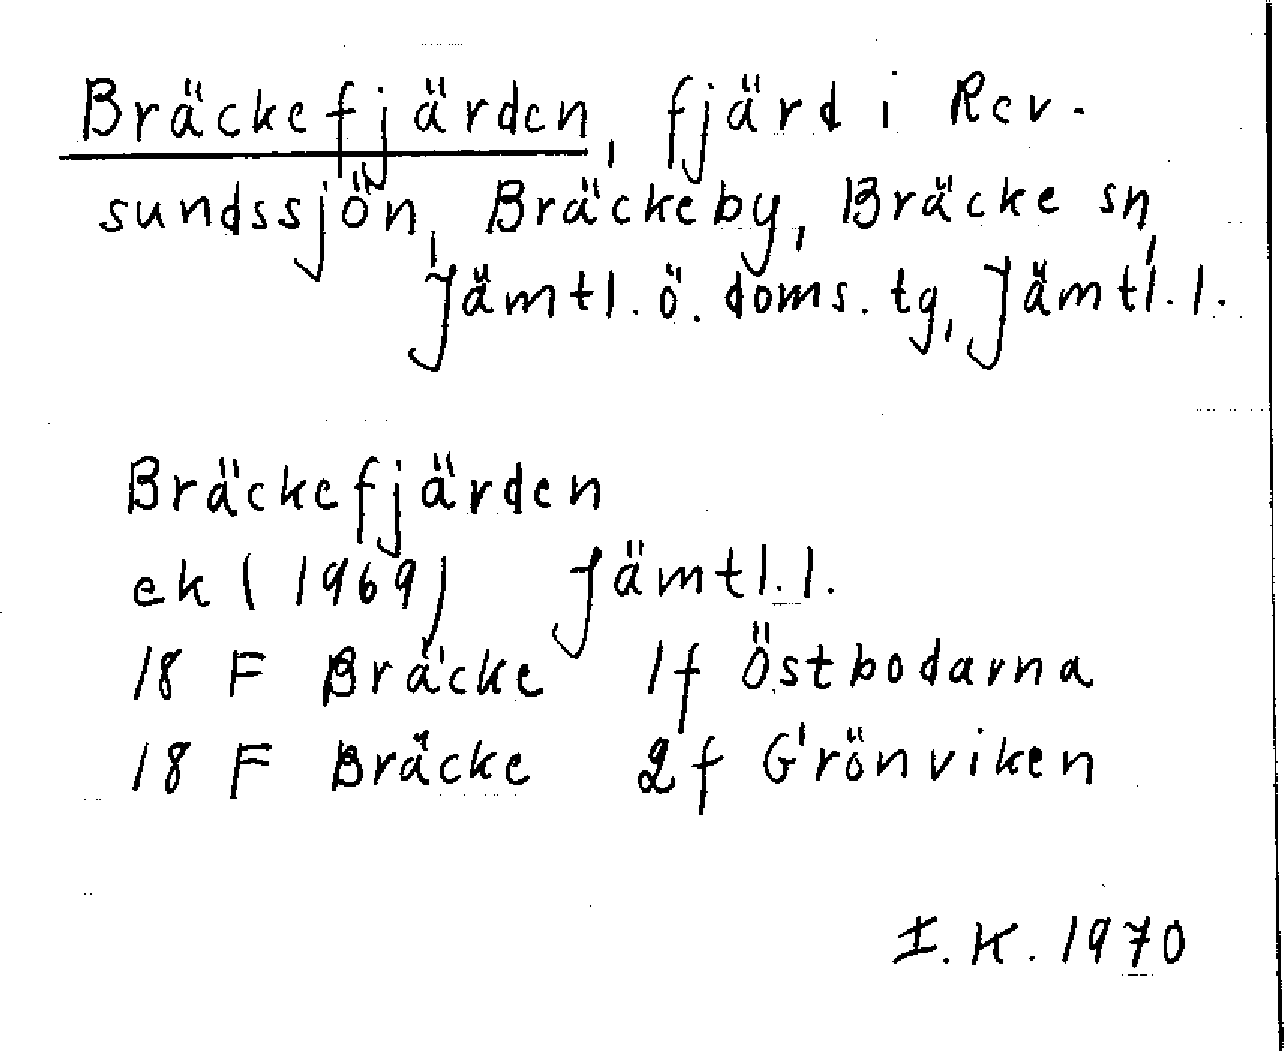 Bräckefjärden, fjärd i Rev-
sundssjön, Bräckeby, Bräcke sn,
Jämtl. ö. doms. tg, Jämtl. l.
Bräckefjärden
ek (1969) Jämtl. l.
18 F Bräcke 1f Östbodarna
18 F Bräcke 2f Grönviken
I. K. 1970